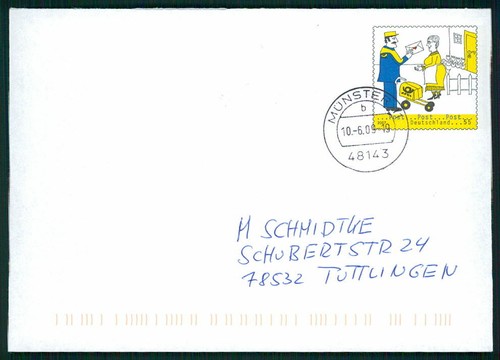 ...Post...Post...Post
Deutschland...55
MÜNSTER
b
10.-6.09-19
48143
M SCHMIDTKE
SCHUBERTSTR 24
78532 TUTTLINGEN